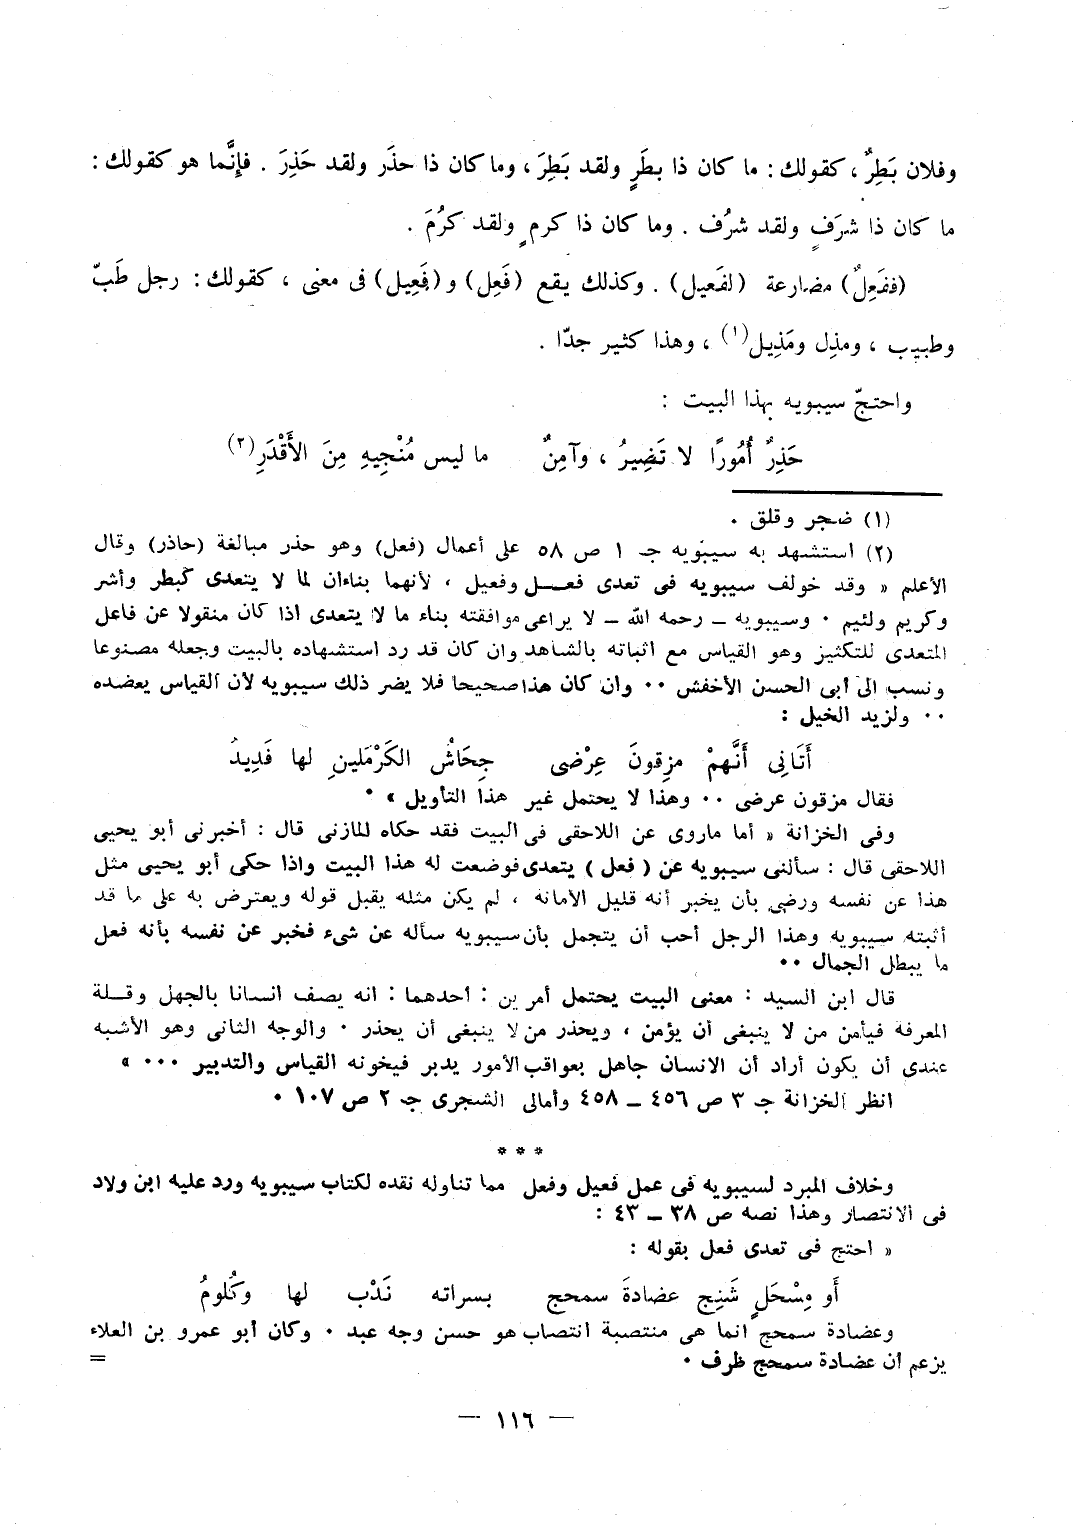 وفلان بَطِرٌ ، كقولك : ما كان ذا بطَرٍ ولقد بَطِرَ ، وما كان ذا حذَر ولقد حَذِرَ . فإنَّما هو كقولك :
ما كان ذا شرَفٍ ولقد شرُف . وما كان ذا كرم ٍ ولقد كرُمَ .
(ففَعِلٌ) مضارعة (لفَعيل) . وكذلك يقع (فَعِل) و(فَعِيل) فى معنى ، كقولك : رجل طَبّ
وطبيب ، ومذِل ومَذِيل(١) ، وهذا كثير جدّا .
واحتجّ سيبويه بهذا البيت :
حَذِرٌ أُمُورًا لا تَضِيرُ ، وآمِنٌ ما ليس مُنْجِيهِ مِنَ الأَقْدَرِ(٢)
(١) ضجر وقلق .
(٢) استشهد به سيبويه جـ ١ ص ٥٨ على أعمال (فعل) وهو حذر مبالغة (حاذر) وقال
الأعلم « وقد خولف سيبويه فى تعدى فعــل وفعيل ، لأنهما بناءان لما لا يتعدى كبطر وأشر
وكريم ولئيم ٠ وسيبويه – رحمه الله – لا يراعى موافقته بناء ما لا يتعدى اذا كان منقولا عن فاعل
المتعدى للتكثيز وهو القياس مع اثباته بالشاهد وان كان قد رد استشهاده بالبيت وجعله مصنوعا
ونسب الى أبى الحسن الأخفش ٠٠ وان كان هذا صحيحا فلا يضر ذلك سيبويه لأن القياس يعضده
٠٠ ولزيد الخيل :
أَتَانِى أَنَّهمْ مزِقونَ عِرْضى جِحَاشُ الكَرْمَلينِ لها فَدِيدُ
فقال مزقون عرضى ٠٠ وهذا لا يحتمل غير هذا التأويل » ٠
وفى الخزانة « أما ماروى عن اللاحقى فى البيت فقد حكاه المازنى قال : أخبرنى أبو يحيى
اللاحقى قال : سألنى سيبويه عن ( فعل ) يتعدى فوضعت له هذا البيت واذا حكى أبو يحيى مثل
هذا عن نفسه ورضى بأن يخبر أنه قليل الأمانه ، لم يكن مثله يقبل قوله ويعترض به على ما قد
أثبته سيبويه وهذا الرجل أحب أن يتجمل بأن سيبويه سأله عن شىء فخبر عن نفسه بأنه فعل
ما يبطل الجمال ٠٠
قال ابن السيد : معنى البيت يحتمل أمرين : أحدهما : انه يصف انسانا بالجهل وقــلة
المعرفة فيأمن من لا ينبغى أن يؤمن ، ويحذر من لا ينبغى أن يحذر ٠ والوجه الثانى وهو الأشبه
عندى أن يكون أراد أن الانسان جاهل بعواقب الأمور يدبر فيخونه القياس والتدبير ٠٠٠ »
انظر الخزانة جـ ٣ ص ٤٥٦ – ٤٥٨ وأمالى الشجرى جـ ٢ ص ١٠٧ ٠
* * *
وخلاف المبرد لسيبويه فى عمل فعيل وفعل مما تناوله نقده لكتاب سيبويه ورد عليه ابن ولاد
فى الانتصار وهذا نصه ص ٣٨ – ٤٣ :
« احتج فى تعدى فعل بقوله :
أَو مِسْحَلٍ شَنِج عضادةَ سمحج بسراته نَدْب لها وكُلومُ
وعضادة سمحج انما هى منتصبة انتصاب هو حسن وجه عبد ٠ وكان أبو عمرو بن العلاء
يزعم أن عضادة سمحج ظرف ٠ =
— ١١٦ —